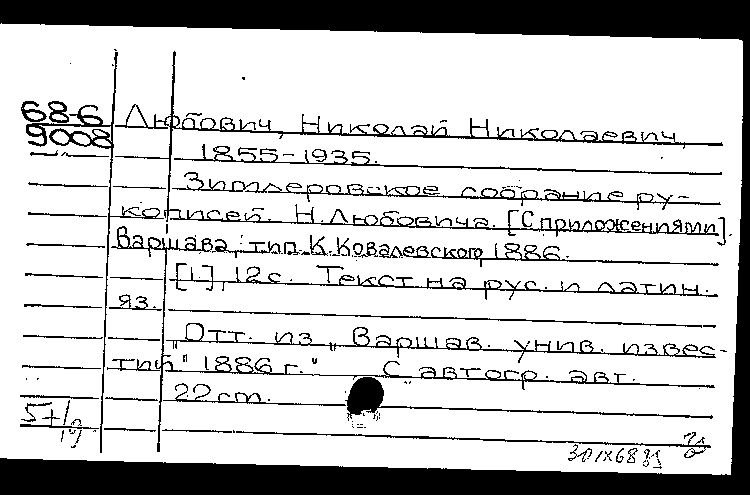 68-6
9008
Любович, Николай Николаевич,
1855-1935.
Зитлеровское собрание ру-
кописей. Н. Любовича. [С приложениями].
Варшава, тип. К. Ковалевского, 1886.
[1], 12 с. Текст на рус. и латин.
яз.
"Отт. из "Варшав. унив. извес-
тий" 1886 г." С автогр. авт.
22 cm.
57/19
30 IX 68